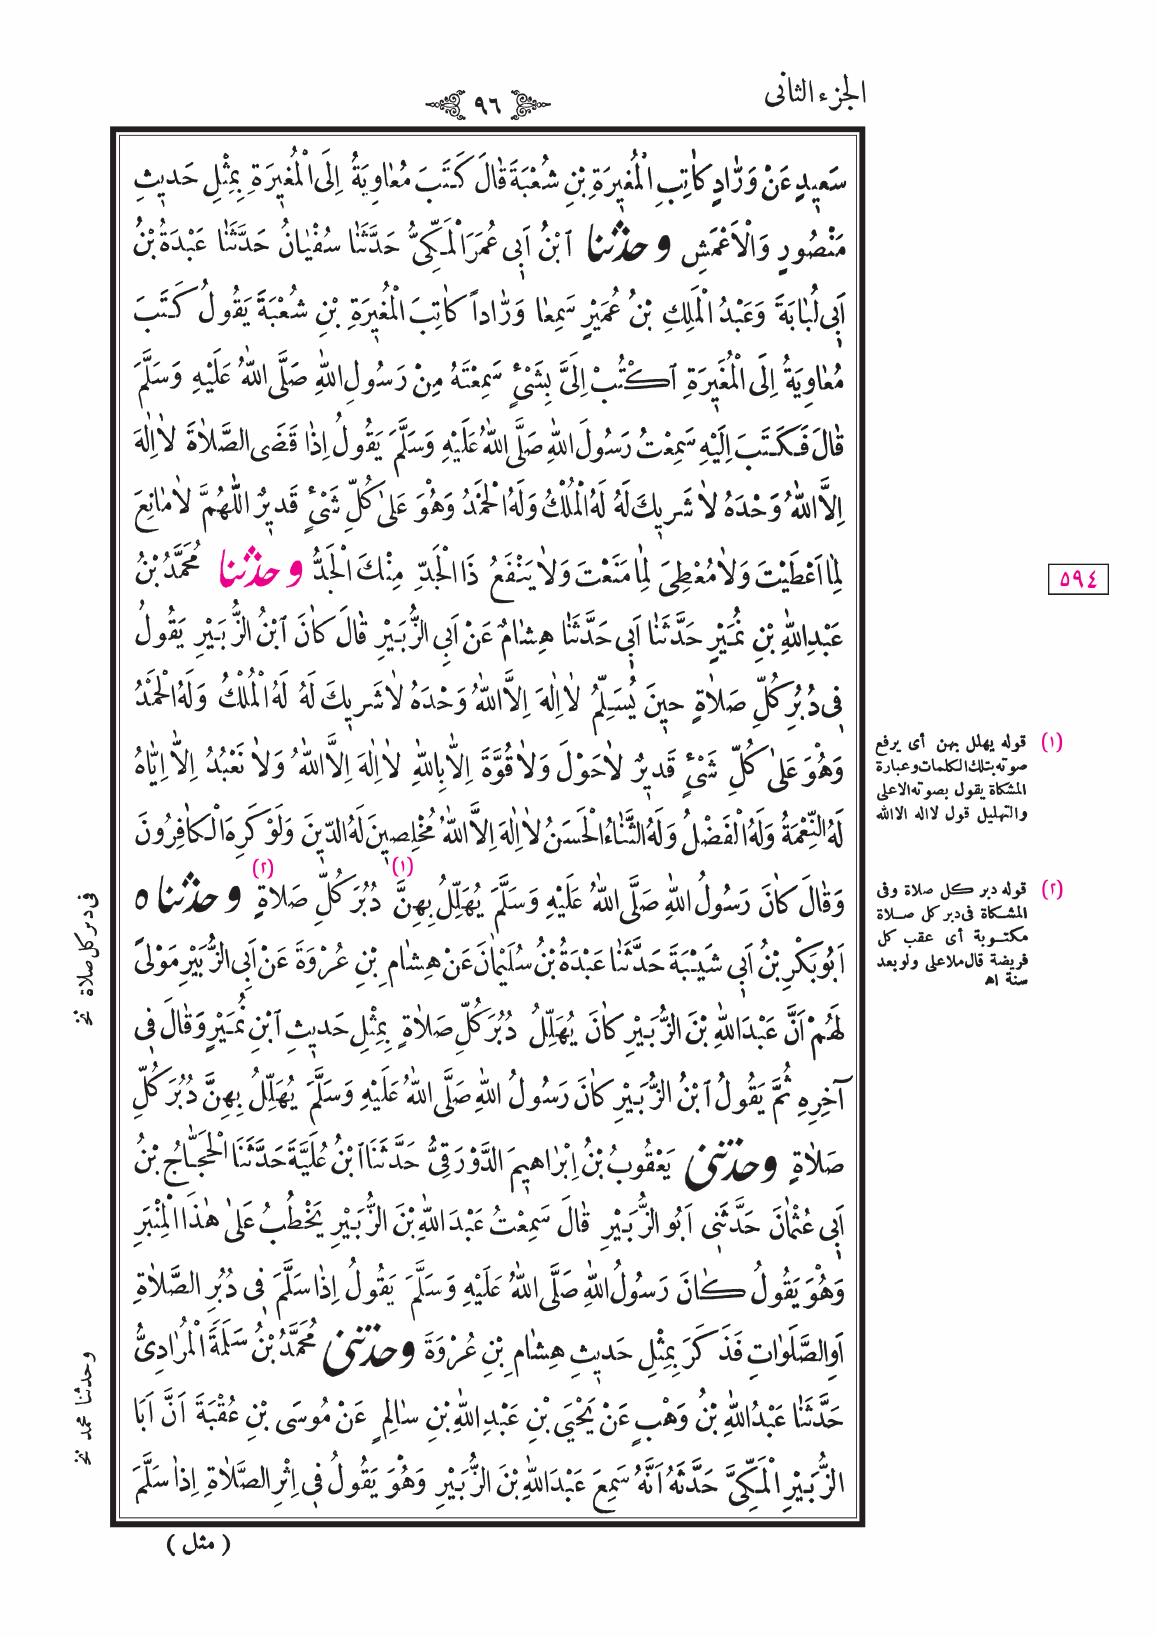 الجزء الثانى
٩٦
سَعِيدٍ عَنْ وَرَّادٍ كَاتِبِ الْمُغِيرَةِ بْنِ شُعْبَةَ قَالَ كَتَبَ مُعَاوِيَةُ إِلَى الْمُغِيرَةِ بِمِثْلِ حَدِيثِ
مَنْصُورٍ وَالْاَعْمَشِ وحدثنا ابْنُ اَبِى عُمَرَ الْمَكِّىُّ حَدَّثَنَا سُفْيَانُ حَدَّثَنَا عَبْدَةُ بْنُ
اَبِى لُبَابَةَ وَعَبْدُ الْمَلِكِ بْنُ عُمَيْرٍ سَمِعَا وَرَّاداً كَاتِبَ الْمُغِيرَةِ بْنِ شُعْبَةَ يَقُولُ كَتَبَ
مُعَاوِيَةُ اِلَى الْمُغِيرَةِ اكْتُبْ اِلَىَّ بِشَىْءٍ سَمِعْتَهُ مِنْ رَسُولِ اللهِ صَلَّى اللهُ عَلَيْهِ وَسَلَّمَ
قَالَ فَكَتَبَ اِلَيْهِ سَمِعْتُ رَسُولَ اللهِ صَلَّى اللهُ عَلَيْهِ وَسَلَّمَ يَقُولُ اِذَا قَضَى الصَّلاَةَ لاَ اِلٰهَ
اِلاَّ اللهُ وَحْدَهُ لاَ شَرِيكَ لَهُ لَهُ الْمُلْكُ وَلَهُ الْحَمْدُ وَهُوَ عَلَى كُلِّ شَىْءٍ قَدِيرٌ اللّٰهُمَّ لاَ مَانِعَ
لِمَا اَعْطَيْتَ وَلاَ مُعْطِىَ لِمَا مَنَعْتَ وَلاَ يَنْفَعُ ذَا الْجَدِّ مِنْكَ الْجَدُّ وحدثنا مُحَمَّدُ بْنُ
عَبْدِ اللهِ بْنِ نُمَيْرٍ حَدَّثَنَا اَبِى حَدَّثَنَا هِشَامٌ عَنْ اَبِى الزُّبَيْرِ قَالَ كَانَ ابْنُ الزُّبَيْرِ يَقُولُ
فِى دُبُرِ كُلِّ صَلاَةٍ حِينَ يُسَلِّمُ لاَ اِلٰهَ اِلاَّ اللهُ وَحْدَهُ لاَ شَرِيكَ لَهُ لَهُ الْمُلْكُ وَلَهُ الْحَمْدُ
وَهُوَ عَلَى كُلِّ شَىْءٍ قَدِيرٌ لاَ حَوْلَ وَلاَ قُوَّةَ اِلاَّ بِاللهِ لاَ اِلٰهَ اِلاَّ اللهُ وَلاَ نَعْبُدُ اِلاَّ اِيَّاهُ
لَهُ النِّعْمَةُ وَلَهُ الْفَضْلُ وَلَهُ الثَّنَاءُ الْحَسَنُ لاَ اِلٰهَ اِلاَّ اللهُ مُخْلِصِينَ لَهُ الدِّينَ وَلَوْ كَرِهَ الْكَافِرُونَ
وَقَالَ كَانَ رَسُولُ اللهِ صَلَّى اللهُ عَلَيْهِ وَسَلَّمَ يُهَلِّلُ بِهِنَّ (١) دُبُرَ كُلِّ صَلاَةٍ (٢) وحدثناه
اَبُو بَكْرِ بْنُ اَبِى شَيْبَةَ حَدَّثَنَا عَبْدَةُ بْنُ سُلَيْمَانَ عَنْ هِشَامِ بْنِ عُرْوَةَ عَنْ اَبِى الزُّبَيْرِ مَوْلًى
لَهُمْ اَنَّ عَبْدَ اللهِ بْنَ الزُّبَيْرِ كَانَ يُهَلِّلُ دُبُرَ كُلِّ صَلاَةٍ بِمِثْلِ حَدِيثِ ابْنِ نُمَيْرٍ وَقَالَ فِى
آخِرِهِ ثُمَّ يَقُولُ ابْنُ الزُّبَيْرِ كَانَ رَسُولُ اللهِ صَلَّى اللهُ عَلَيْهِ وَسَلَّمَ يُهَلِّلُ بِهِنَّ دُبُرَ كُلِّ
صَلاَةٍ وحدثنى يَعْقُوبُ بْنُ اِبْرَاهِيمَ الدَّوْرَقِىُّ حَدَّثَنَا ابْنُ عُلَيَّةَ حَدَّثَنَا الْحَجَّاجُ بْنُ
اَبِى عُثْمَانَ حَدَّثَنِى اَبُو الزُّبَيْرِ قَالَ سَمِعْتُ عَبْدَ اللهِ بْنَ الزُّبَيْرِ يَخْطُبُ عَلَى هٰذَا الْمِنْبَرِ
وَهُوَ يَقُولُ كَانَ رَسُولُ اللهِ صَلَّى اللهُ عَلَيْهِ وَسَلَّمَ يَقُولُ اِذَا سَلَّمَ فِى دُبُرِ الصَّلاَةِ
اَوِ الصَّلَوَاتِ فَذَكَرَ بِمِثْلِ حَدِيثِ هِشَامِ بْنِ عُرْوَةَ وحدثنى مُحَمَّدُ بْنُ سَلَمَةَ الْمُرَادِىُّ
حَدَّثَنَا عَبْدُ اللهِ بْنُ وَهْبٍ عَنْ يَحْيَى بْنِ عَبْدِ اللهِ بْنِ سَالِمٍ عَنْ مُوسَى بْنِ عُقْبَةَ اَنَّ اَبَا
الزُّبَيْرِ الْمَكِّىَّ حَدَّثَهُ اَنَّهُ سَمِعَ عَبْدَ اللهِ بْنَ الزُّبَيْرِ وَهُوَ يَقُولُ فِى اِثْرِ الصَّلاَةِ اِذَا سَلَّمَ
( مثل )
٥٩٤
(١) قوله يهلل بهن أى يرفع
صوته بتلك الكلمات وعبارة
المشكاة يقول بصوته الاعلى
والتهليل قول لا اله الا الله
(٢) قوله دبر كل صلاة وفى
المشكاة فى دبر كل صلاة
مكتوبة أى عقب كل
فريضة قال ملا على ولو بعد
سنة اه
فى دبر كل صلاة نخ
وحدثنا محمد نخ